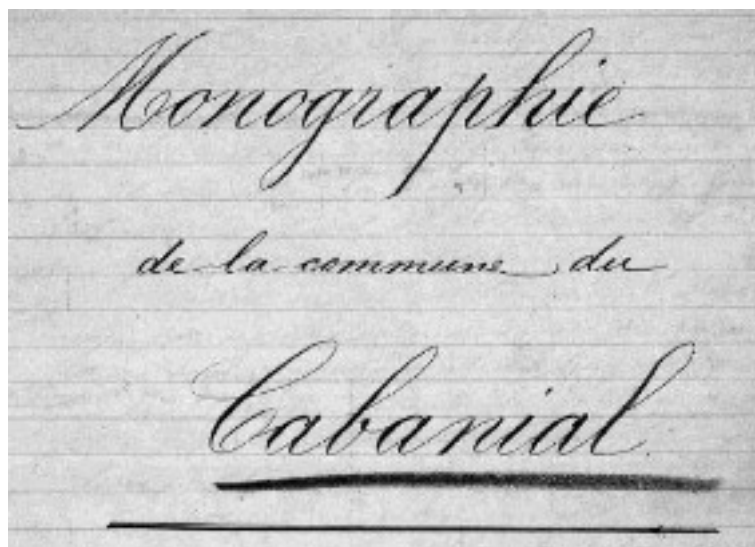 Monographie
de la commune du
Cabanial